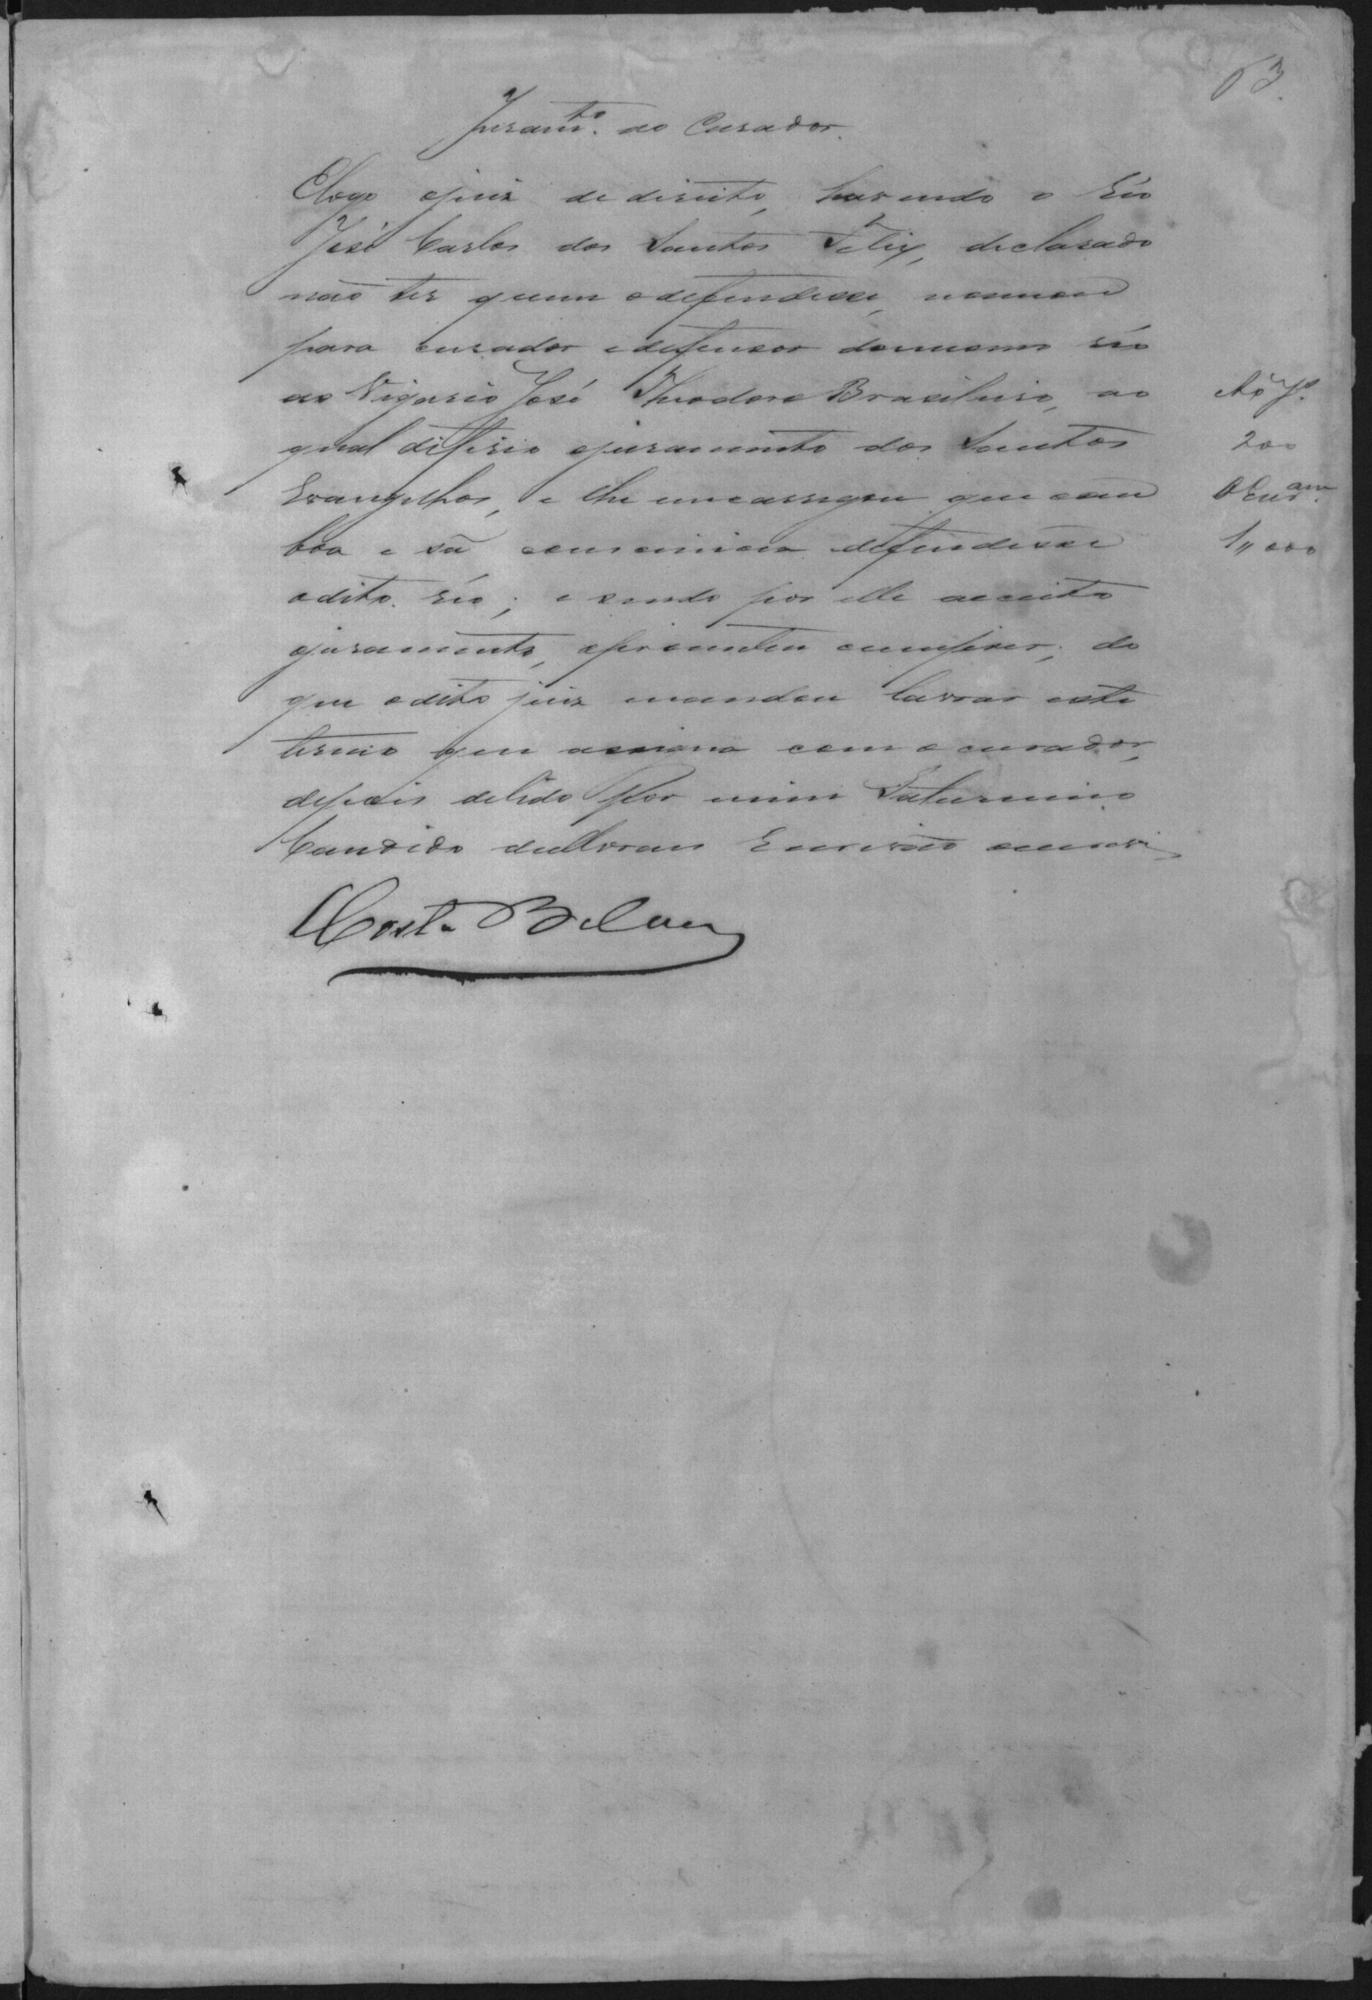 63
Juram.to ao Curador.
E logo o juiz de direito, havendo o réo
José Carlos dos Santos Felix, declarado
não ter quem o defendesse, nomeou
para curador e defensor do mesmo réo
ao Vigario José Theodoro Brasileiro, ao
qual deferio o juramento dos Santos
Evangelhos, e lhe encarregou que com
boa e sã consciencia defendesse
o dito réo; e sendo por elle acceito
o juramento, o prometteu cumprir; do
que o dito juiz mandou lavrar este
termo que assigna com o curador,
depois de lido por mim Saturnino
Candido de Moraes Escrivão escrevi
Ao J.
200
1,,000
Costa